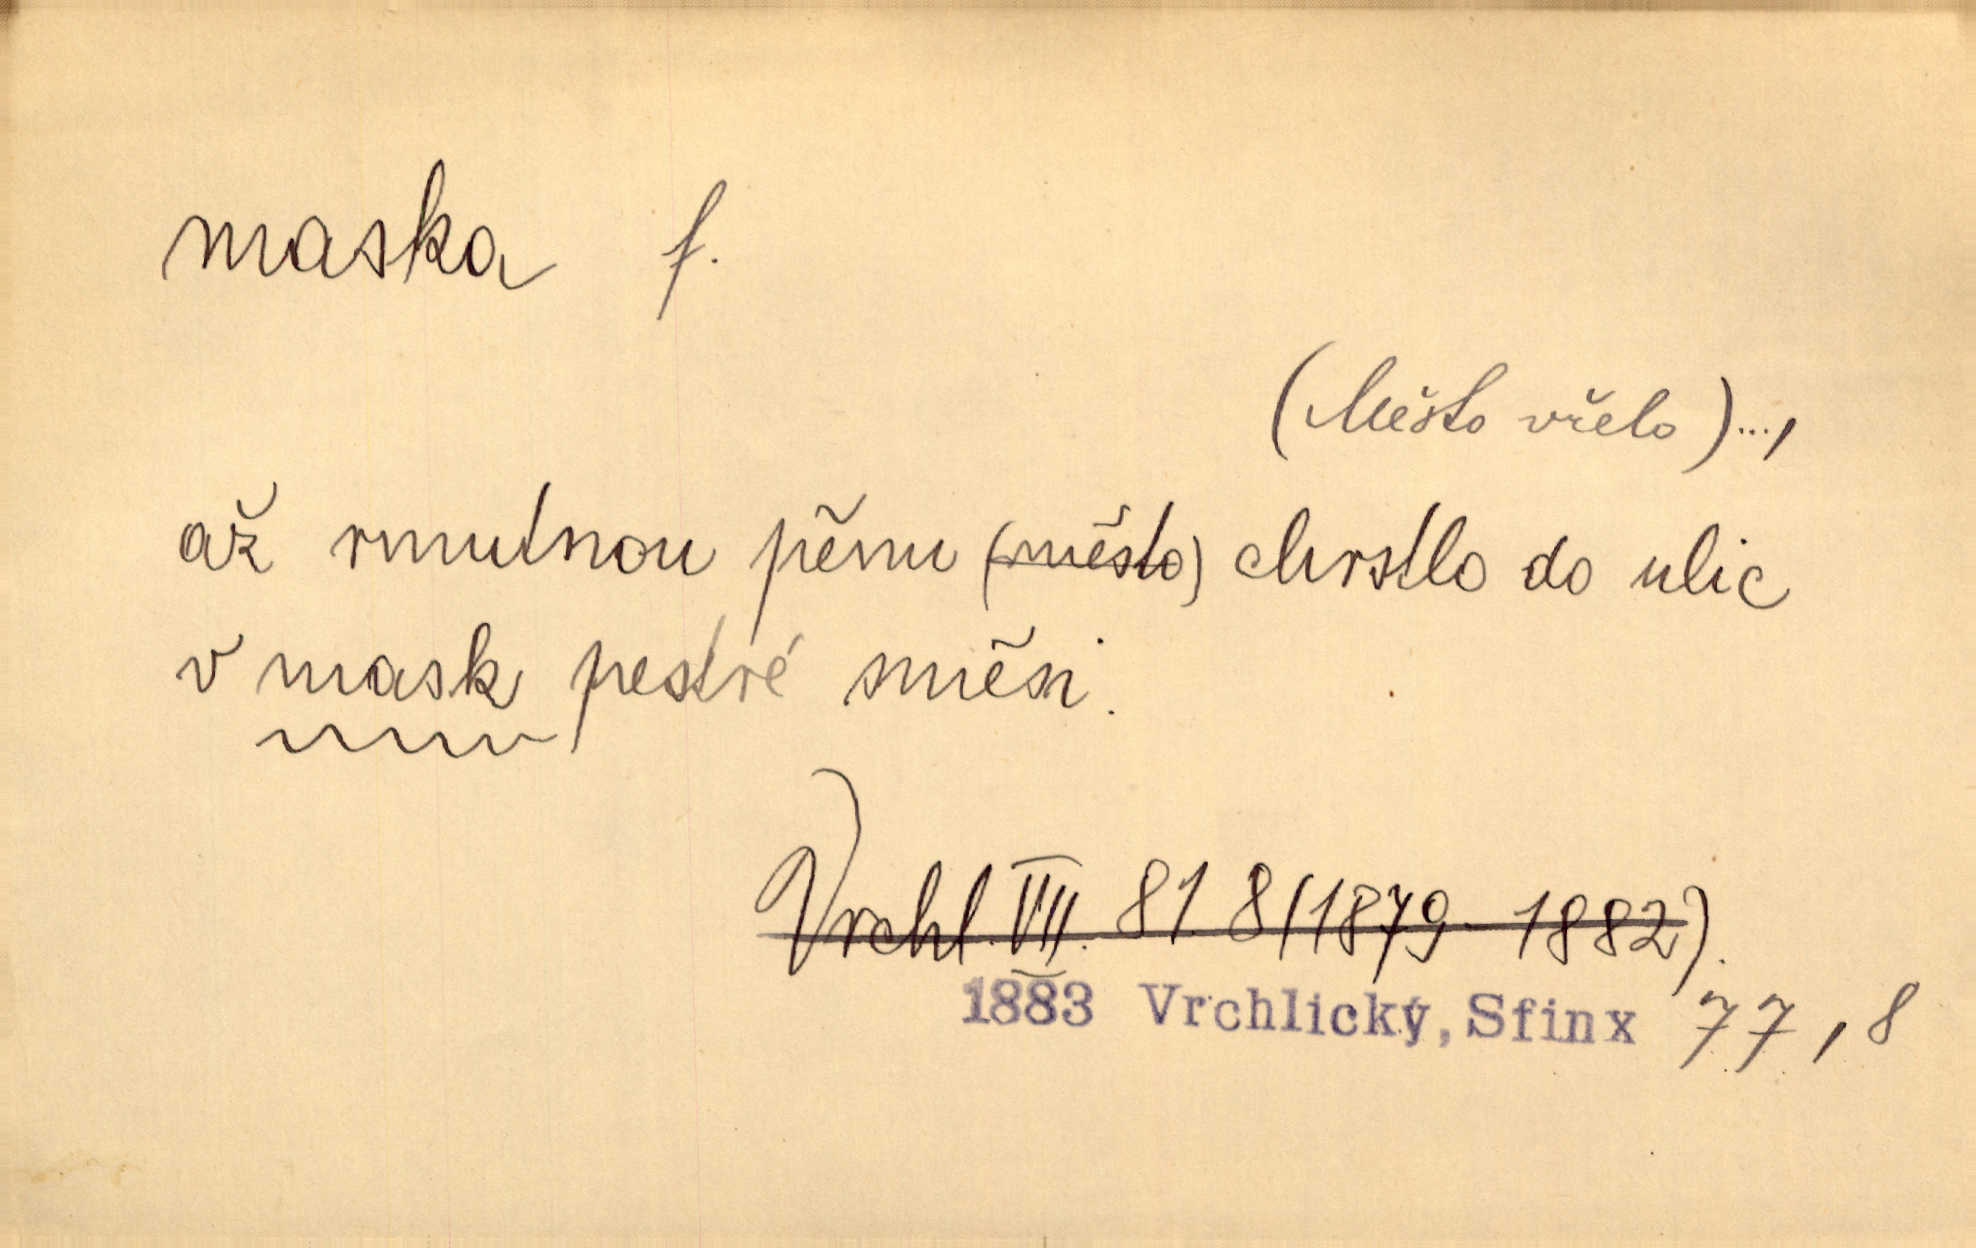 maska f.
(Město vřelo)...,
až rmutnou pěnu (město) chrstlo do ulic
v mask pestré směsi.
Vrchl. VII. 81 8 (1879–1882).
1883 Vrchlický, Sfinx 77, 8